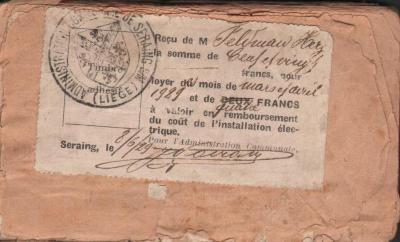 ADMINISTRATION COMMUNALE DE SERAING
(LIÈGE)
Timbre
adhésif
Reçu de M Feldman Herz
la somme de
francs, pour
loyer du mois de mars et avril
1929 et de DEUX FRANCS
quatre
à valoir en remboursement
du coût de l'installation élec-
trique.
Pour l'Administration Communale,
Seraing, le 2/5/29